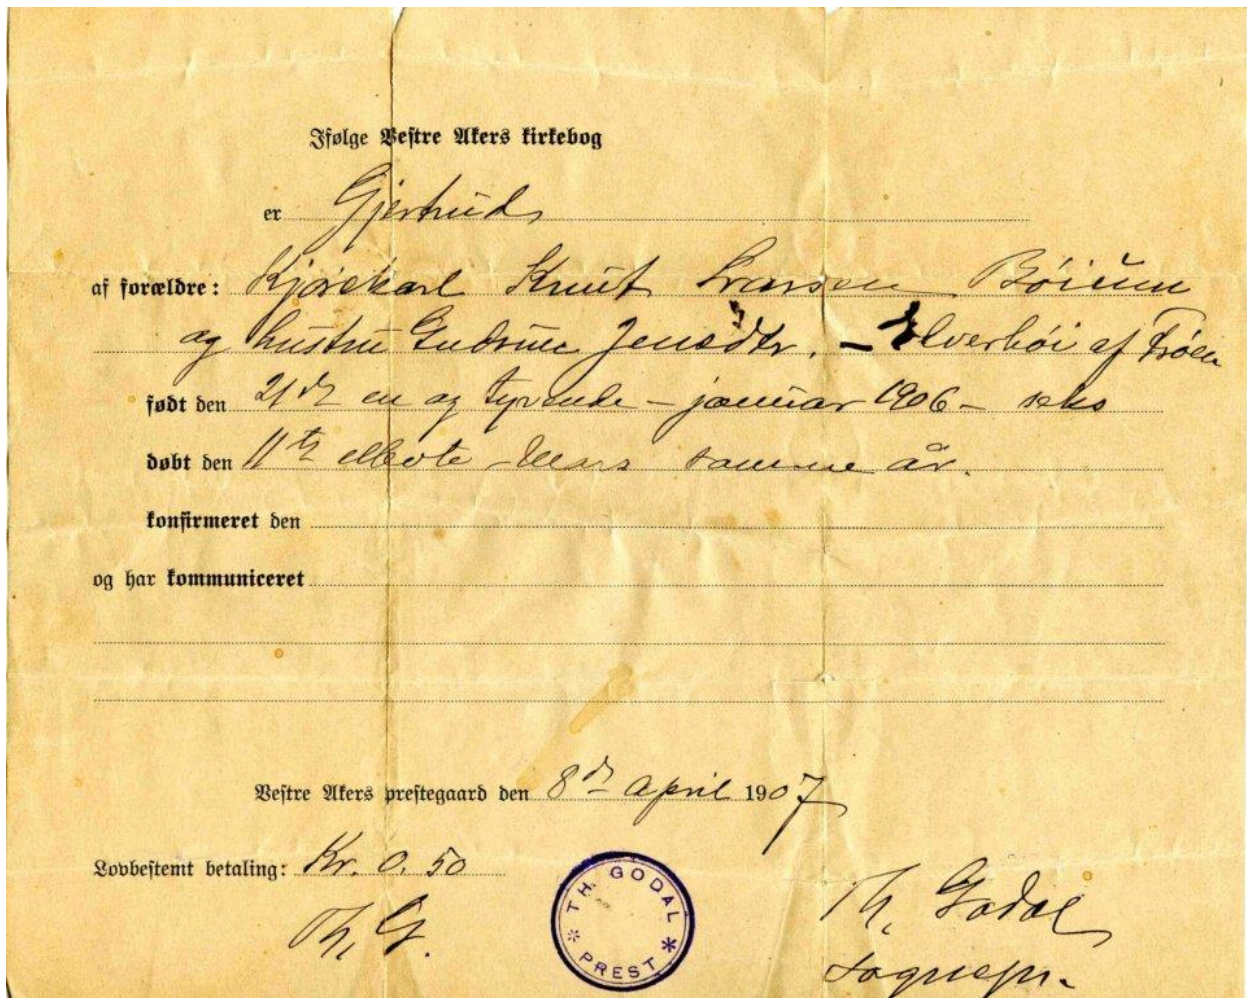 Ifølge Vestre Akers kirkebog
er Gjertrud
af forældre: Kjørekarl Knut Larsen Bøium
og hustru Gudrun Jensdtr. – Elverhøi af Frøen
født den 21de en og tyvende – januar 1906 – seks
døbt den 11te ellevte – Mars samme år.
konfirmeret den
og har kommuniceret
Vestre Akers prestegaard den 8de april 1907
Lovbestemt betaling: Kr. 0.50
Th. G.
TH. GODAL
PREST
Th. Godal
sognepr.